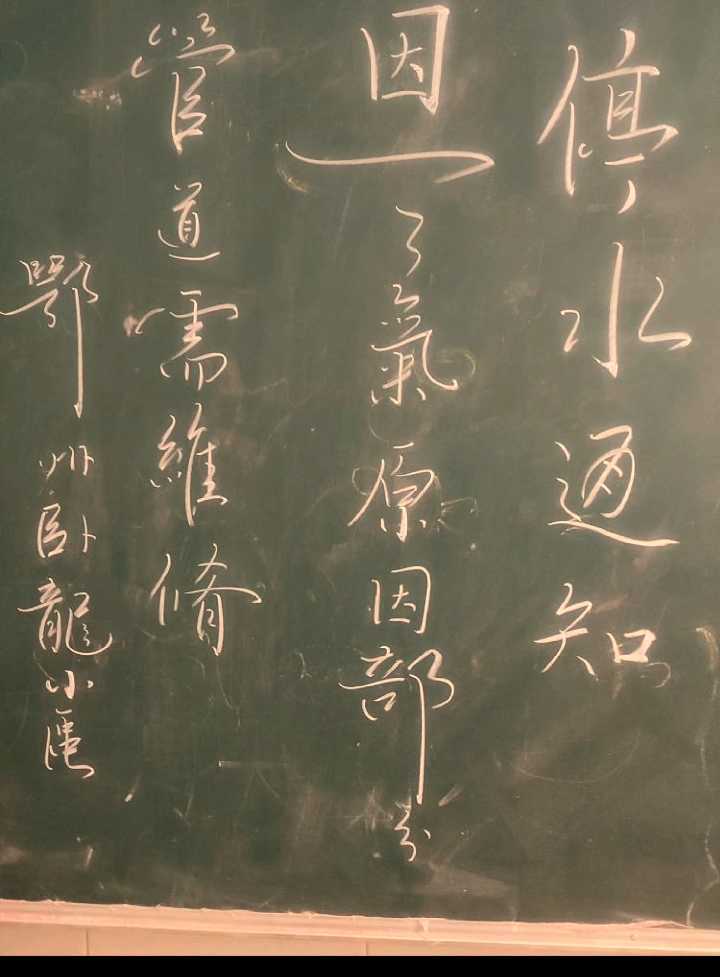 停水通知
因天氣原因部分
管道需維脩
鄂州卧龍小區